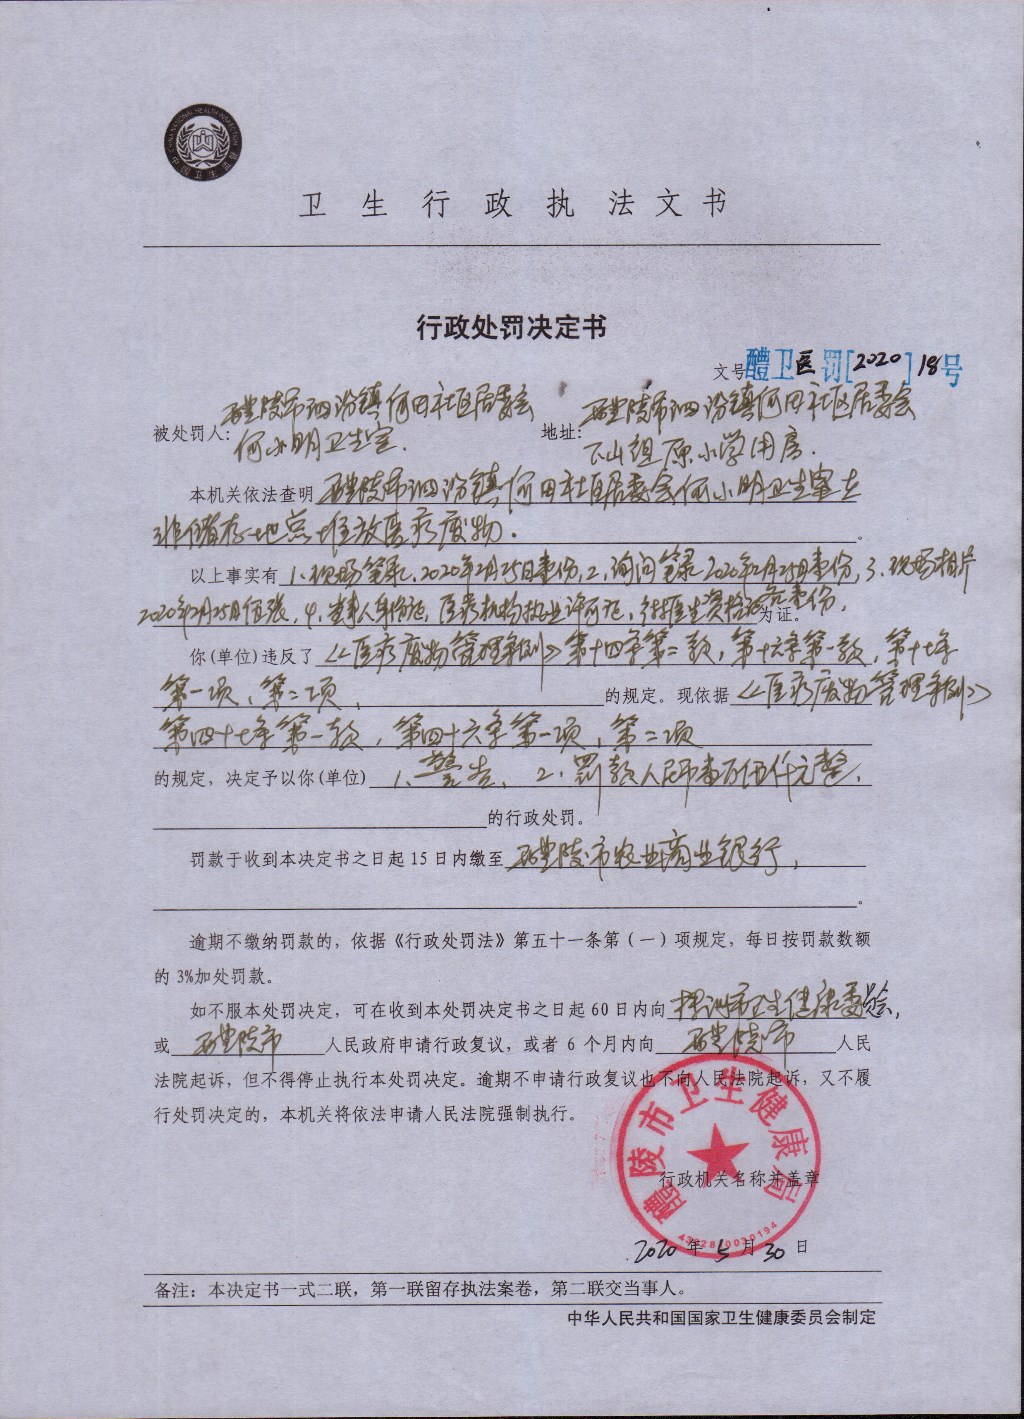 中国卫生监督
卫生行政执法文书
行政处罚决定书
文号醴卫医罚[2020]18号
被处罚人：醴陵市泗汾镇何田社区居委会何小明卫生室. 地址：醴陵市泗汾镇何田社区居委会下山组原小学用房.
本机关依法查明 醴陵市泗汾镇何田社区居委会何小明卫生室在
非储存地点堆放医疗废物. 。
以上事实有 1、现场笔录, 2020年2月25日壹份, 2、询问笔录2020年2月25日壹份, 3、现场相片
2020年2月25日伍张, 4、当事人身份证, 医疗机构执业许可证, 乡村医生资格证各壹份, 为证。
你(单位)违反了《医疗废物管理条例》第十四条第二款, 第十六条第一款, 第十七条
第一项、第二项 的规定。现依据《医疗废物管理条例》
第四十七条第一款, 第四十六条第一项, 第二项
的规定，决定予以你(单位) 1、警告、2、罚款人民币壹万伍仟元整.
的行政处罚。
罚款于收到本决定书之日起15日内缴至 醴陵市农业商业银行,
。
逾期不缴纳罚款的，依据《行政处罚法》第五十一条第（一）项规定，每日按罚款数额
的3%加处罚款。
如不服本处罚决定，可在收到本处罚决定书之日起60日内向 株洲市卫生健康委员会,
或 醴陵市 人民政府申请行政复议，或者6个月内向 醴陵市 人民
法院起诉，但不得停止执行本处罚决定。逾期不申请行政复议也不向人民法院起诉，又不履
行处罚决定的，本机关将依法申请人民法院强制执行。
醴陵市卫生健康局
行政机关名称并盖章
2020年5月30日
备注：本决定书一式二联，第一联留存执法案卷，第二联交当事人。
中华人民共和国国家卫生健康委员会制定